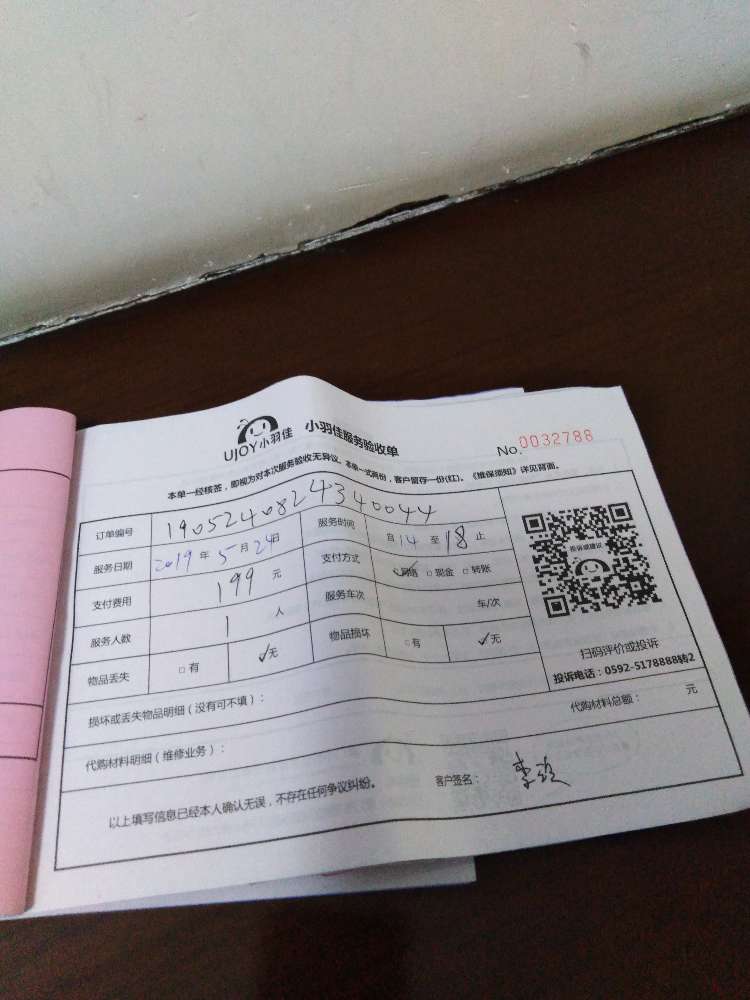 UJOY小羽佳 小羽佳服务验收单 No. 0032788
本单一经核签，即视为对本次服务验收无异议。本单一式两份，客户留存一份(红)。《维保须知》详见背面。
订单编号 1905240824340044
服务日期 2019 年 5 月 24 日 服务时间 自 14 至 18 止
支付费用 199 元 支付方式 ✓网络 □现金 □转账
服务人数 1 人 服务车次 车/次
物品丢失 □有 ✓无 物品损坏 □有 ✓无
投诉或建议
扫码评价或投诉
投诉电话：0592-5178888转2
损坏或丢失物品明细（没有可不填）：
代购材料明细（维修业务）： 代购材料总额： 元
以上填写信息已经本人确认无误，不存在任何争议纠纷。 客户签名：